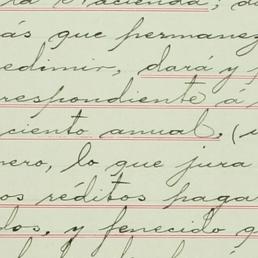 la Hacienda; d
ás que permanez
edimir, dará y p
respondiente á
ciento anual, (
nero, lo que jura
os réditos paga
dos, y fenecido q